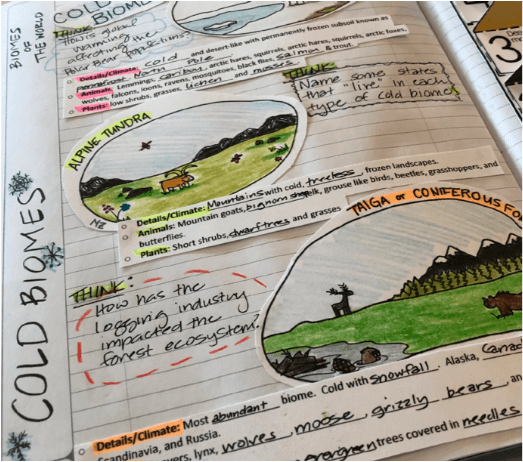 COLD BIOMES
BIOMES
OF
THE WORLD
THINK:
How is global
warming
affecting the
Polar Bear populations?
Details/Climate: cold and desert-like with permanently frozen subsoil known as
permafrost North Pole
Animals: Lemmings, caribou, arctic hares, squirrels, arctic foxes,
wolves, falcons, loons, ravens, mosquitos, black flies, salmon & trout.
Plants: low shrubs, grasses, lichen and mosses
THINK:
Name some states
that "live" in each
type of cold biome
ALPINE TUNDRA
Details/Climate: Mountains with cold, treeless, frozen landscapes.
Animals: Mountain goats, bighorn sheep, elk, grouse like birds, beetles, grasshoppers, and
butterflies.
Plants: Short shrubs, dwarf trees and grasses
TAIGA or CONIFEROUS FO
THINK:
How has the
logging industry
impacted the
forest ecosystem?
COLD BIOMES
Details/Climate: Most abundant biome. Cold with snowfall. Alaska, Canad
Scandinavia, and Russia.
vers, lynx, wolves, moose, grizzly bears, an
evergreen trees covered in needles
3